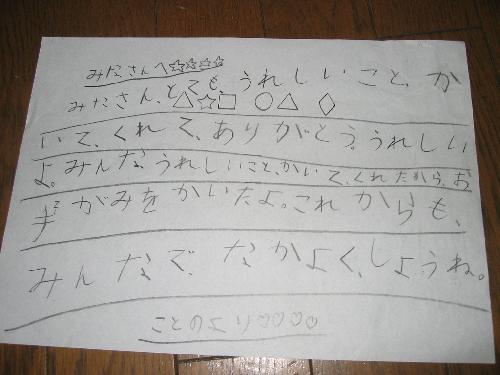 みださんへ☆☆☆☆
みださん、とても、うれしいこと、か
△☆□ ○△ ◇
いて、くれて、ありがとう。うれしい
よ。みんな、うれしいこと、かいて、くれたから、お
手がみをかいたよ。これからも、
みんなで、なかよく、しようね。
ことのより♡♡♡♡